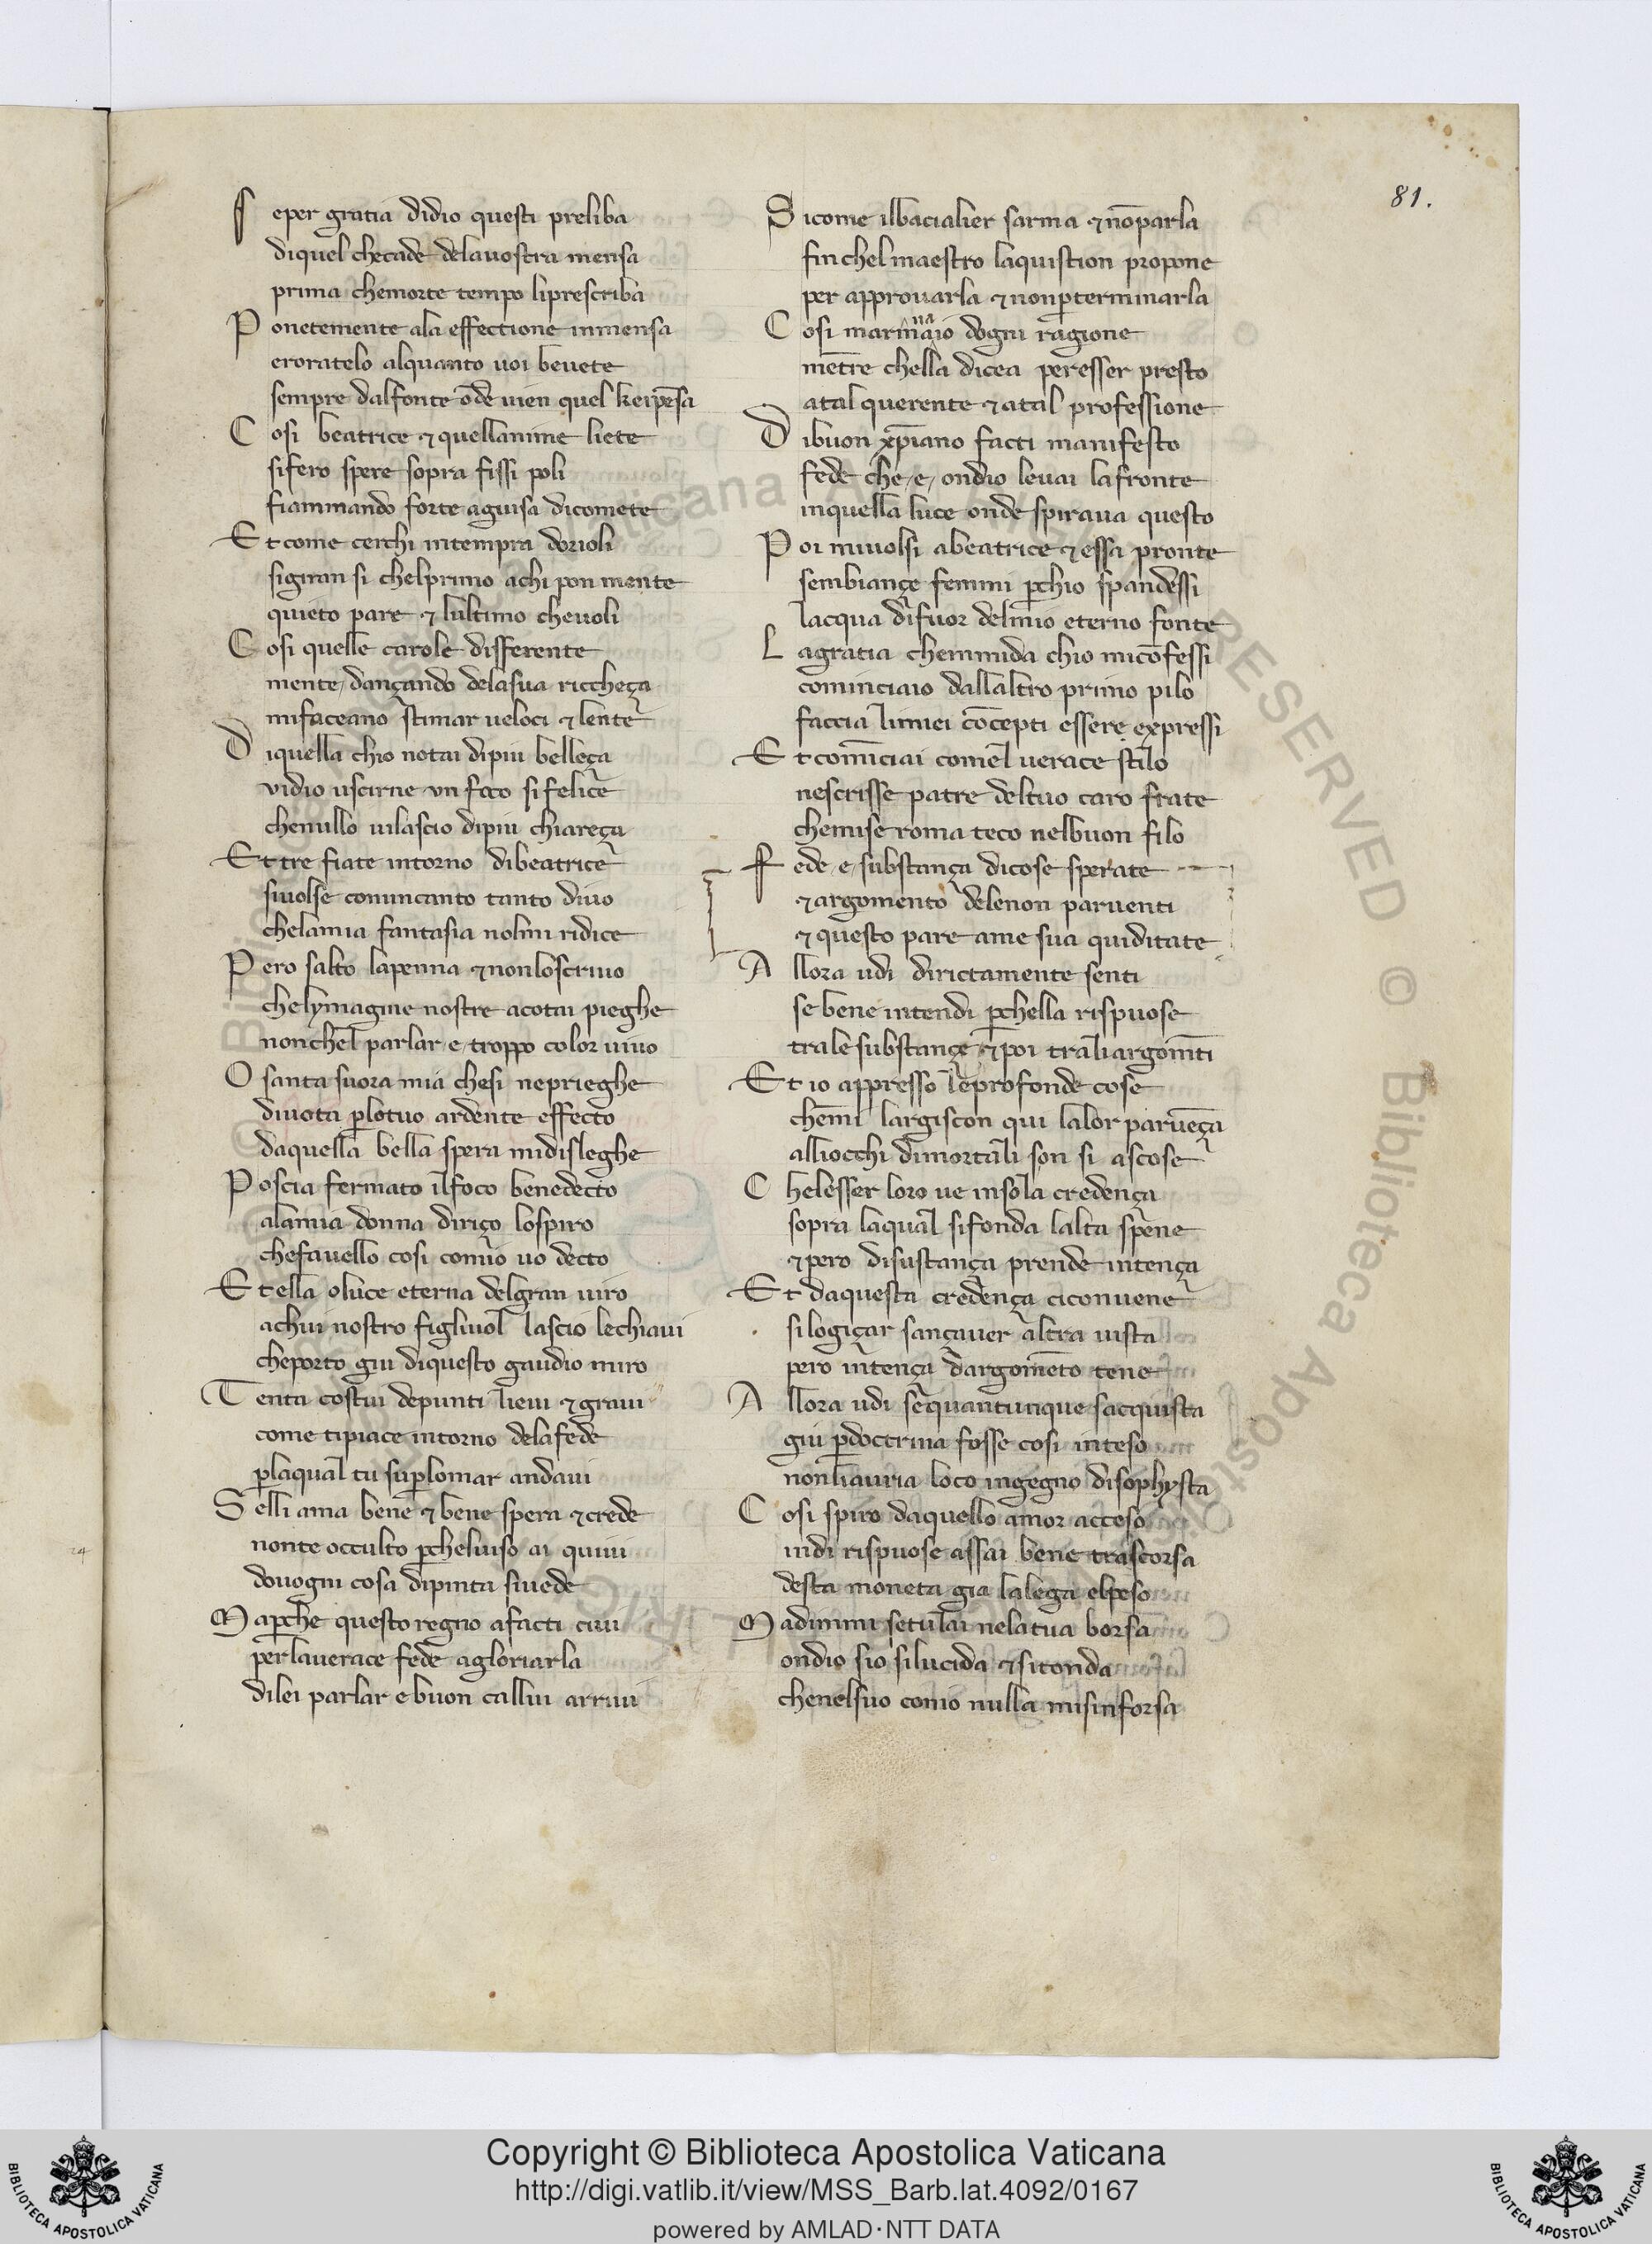 81.
S eper gratia didio questi preliba
diquel checade delauostra mensa
prima chemorte tempo liprescriba
P onetemente ala effectione inmensa
eroratelo alquanto uoi beuete
sempre dalfonte ōde uien quel keipēsa
C osi beatrice ⁊ quellanime liete
sifero spere sopra fissi poli
fiammando forte aguisa dicomete
E t come cerchi intempra dorioli
sigiran si chelprimo achi pon mente
quieto pare ⁊ lultimo cheuoli
C osi quelle carole differente
mente / dançando delasua riccheça
mifaceano stimar ueloci ⁊ lente
D iquella chio notai dipiu belleça
vidio uscirne vn foco si felice
chenullo uilascio dipiu chiareça
E t tre fiate intorno dibeatrice
siuolse conuncanto tanto diuo
chelamia fantasia nolmi ridice
P ero salto lapenna ⁊ nonloscriuo
chelymagine nostre acotai pieghe
nonchel parlar / e / troppo color uiuo
O santa suora mia chesi neprieghe
diuota p̱lotuo ardente effecto
daquella bella spera midisleghe
P oscia fermato ilfoco benedecto
alamia donna diriço lospiro
chefauello cosi comio uo decto
E t ella o luce eterna delgran uiro
achui nostro figliuol lascio lechiaui
cheporto giu diquesto gaudio miro
T enta costui depunti lieui ⁊ graui
come tipiace intorno delafede
p̱laqual tu sup̱lomar andaui
S elli ama bene ⁊ bene spera ⁊ crede
nonte occulto p̱cheluiso ai quiui
douogni cosa dipinta siuede
M ap̱che questo regno afacti ciui
perlauerace fede agloriarla
dilei parlar e buon callui arriui
S icome ilbacialier sarma ⁊ nōparla
fin chel maestro laquistion propone
per approuarla ⁊ nonp̱terminarla
C osi marmaio dogni ragione
na
mētre chella dicea peresser presto
atal querente ⁊ atal professione
D ibuon xp̄iano facti manifesto
fede che / e / ondio leuai lafronte
inquella luce onde spiraua questo
P oi miuolsi abeatrice ⁊ essa pronte
sembiançe femmi p̱chio spandessi
lacqua difuor delmio eterno fonte
L agratia chemmida chio micōfessi
cominciaio dallaltro primo pilo
faccia limiei cōcepti essere expressi
E t comīciai comel uerace stilo
nescrisse patre deltuo caro frate
chemise roma teco nelbuon filo
F ede / e / substança dicose sperate
⁊ argomento delenon paruenti
⁊ questo pare ame sua quiditate
A llora udi dirictamente senti
se bene intendi p̱chella rispuose
trale substançe ⁊ poi traliargomēti
E t io appresso leprofonde cose
chēmi largiscon qui lalor paruēça
alliocchi dimortali son si ascose
C helesser loro ue insola credença
sopra laqual sifonda lalta spene
⁊ pero disustança prende intença
E t daquesta credença ciconuene
silogiçar sançauer altra uista
pero intença dargomēto tene
A llora udi sequantunque sacquista
giu p̱doctrina fosse cosi inteso
nonliauria loco ingegno disophysta
C osi spiro daquello amor acceso
indi rispuose assai bene trascorsa
desta moneta gia lalega elpeso
M adimmi setulai nelatua borsa
ondio sio silucida ⁊ sitonda
chenelsuo comio nulla misinforsa
Copyright © Biblioteca Apostolica Vaticana
http://digi.vatlib.it/view/MSS_Barb.lat.4092/0167
powered by AMLAD·NTT DATA
BIBLIOTECA APOSTOLICA VATICANA
BIBLIOTECA APOSTOLICA VATICANA